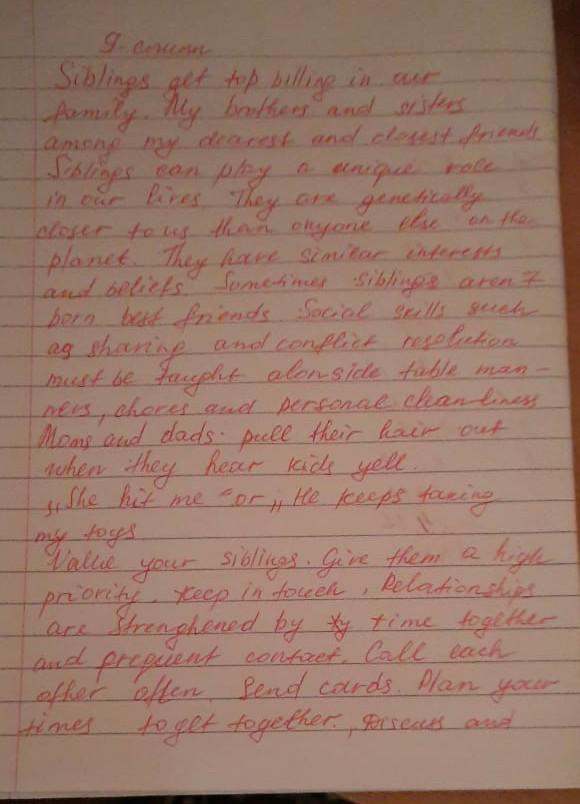 Siblings get top billing in our
family. My brothers and sisters
among my dearest and closest friends
Siblings can play a unique role
in our lives They are genetically
closer to us than anyone else on the
planet. They have similar interests
and beliefs. Sometimes siblings aren't
born best friends Social skills such
as sharing and conflict resolution
must be taught alonside table man-
ners, chores and personal cleanliness
Moms and dads. pull their hair out
when they hear kids yell.
„She hit me “or „He keeps taking
my toys
Value your siblings. Give them a high
priority. Keep in touch, Relationships
are strenghened by time together
and frequent contact. Call each
other often. Send cards. Plan your
times to get together., Discuss and